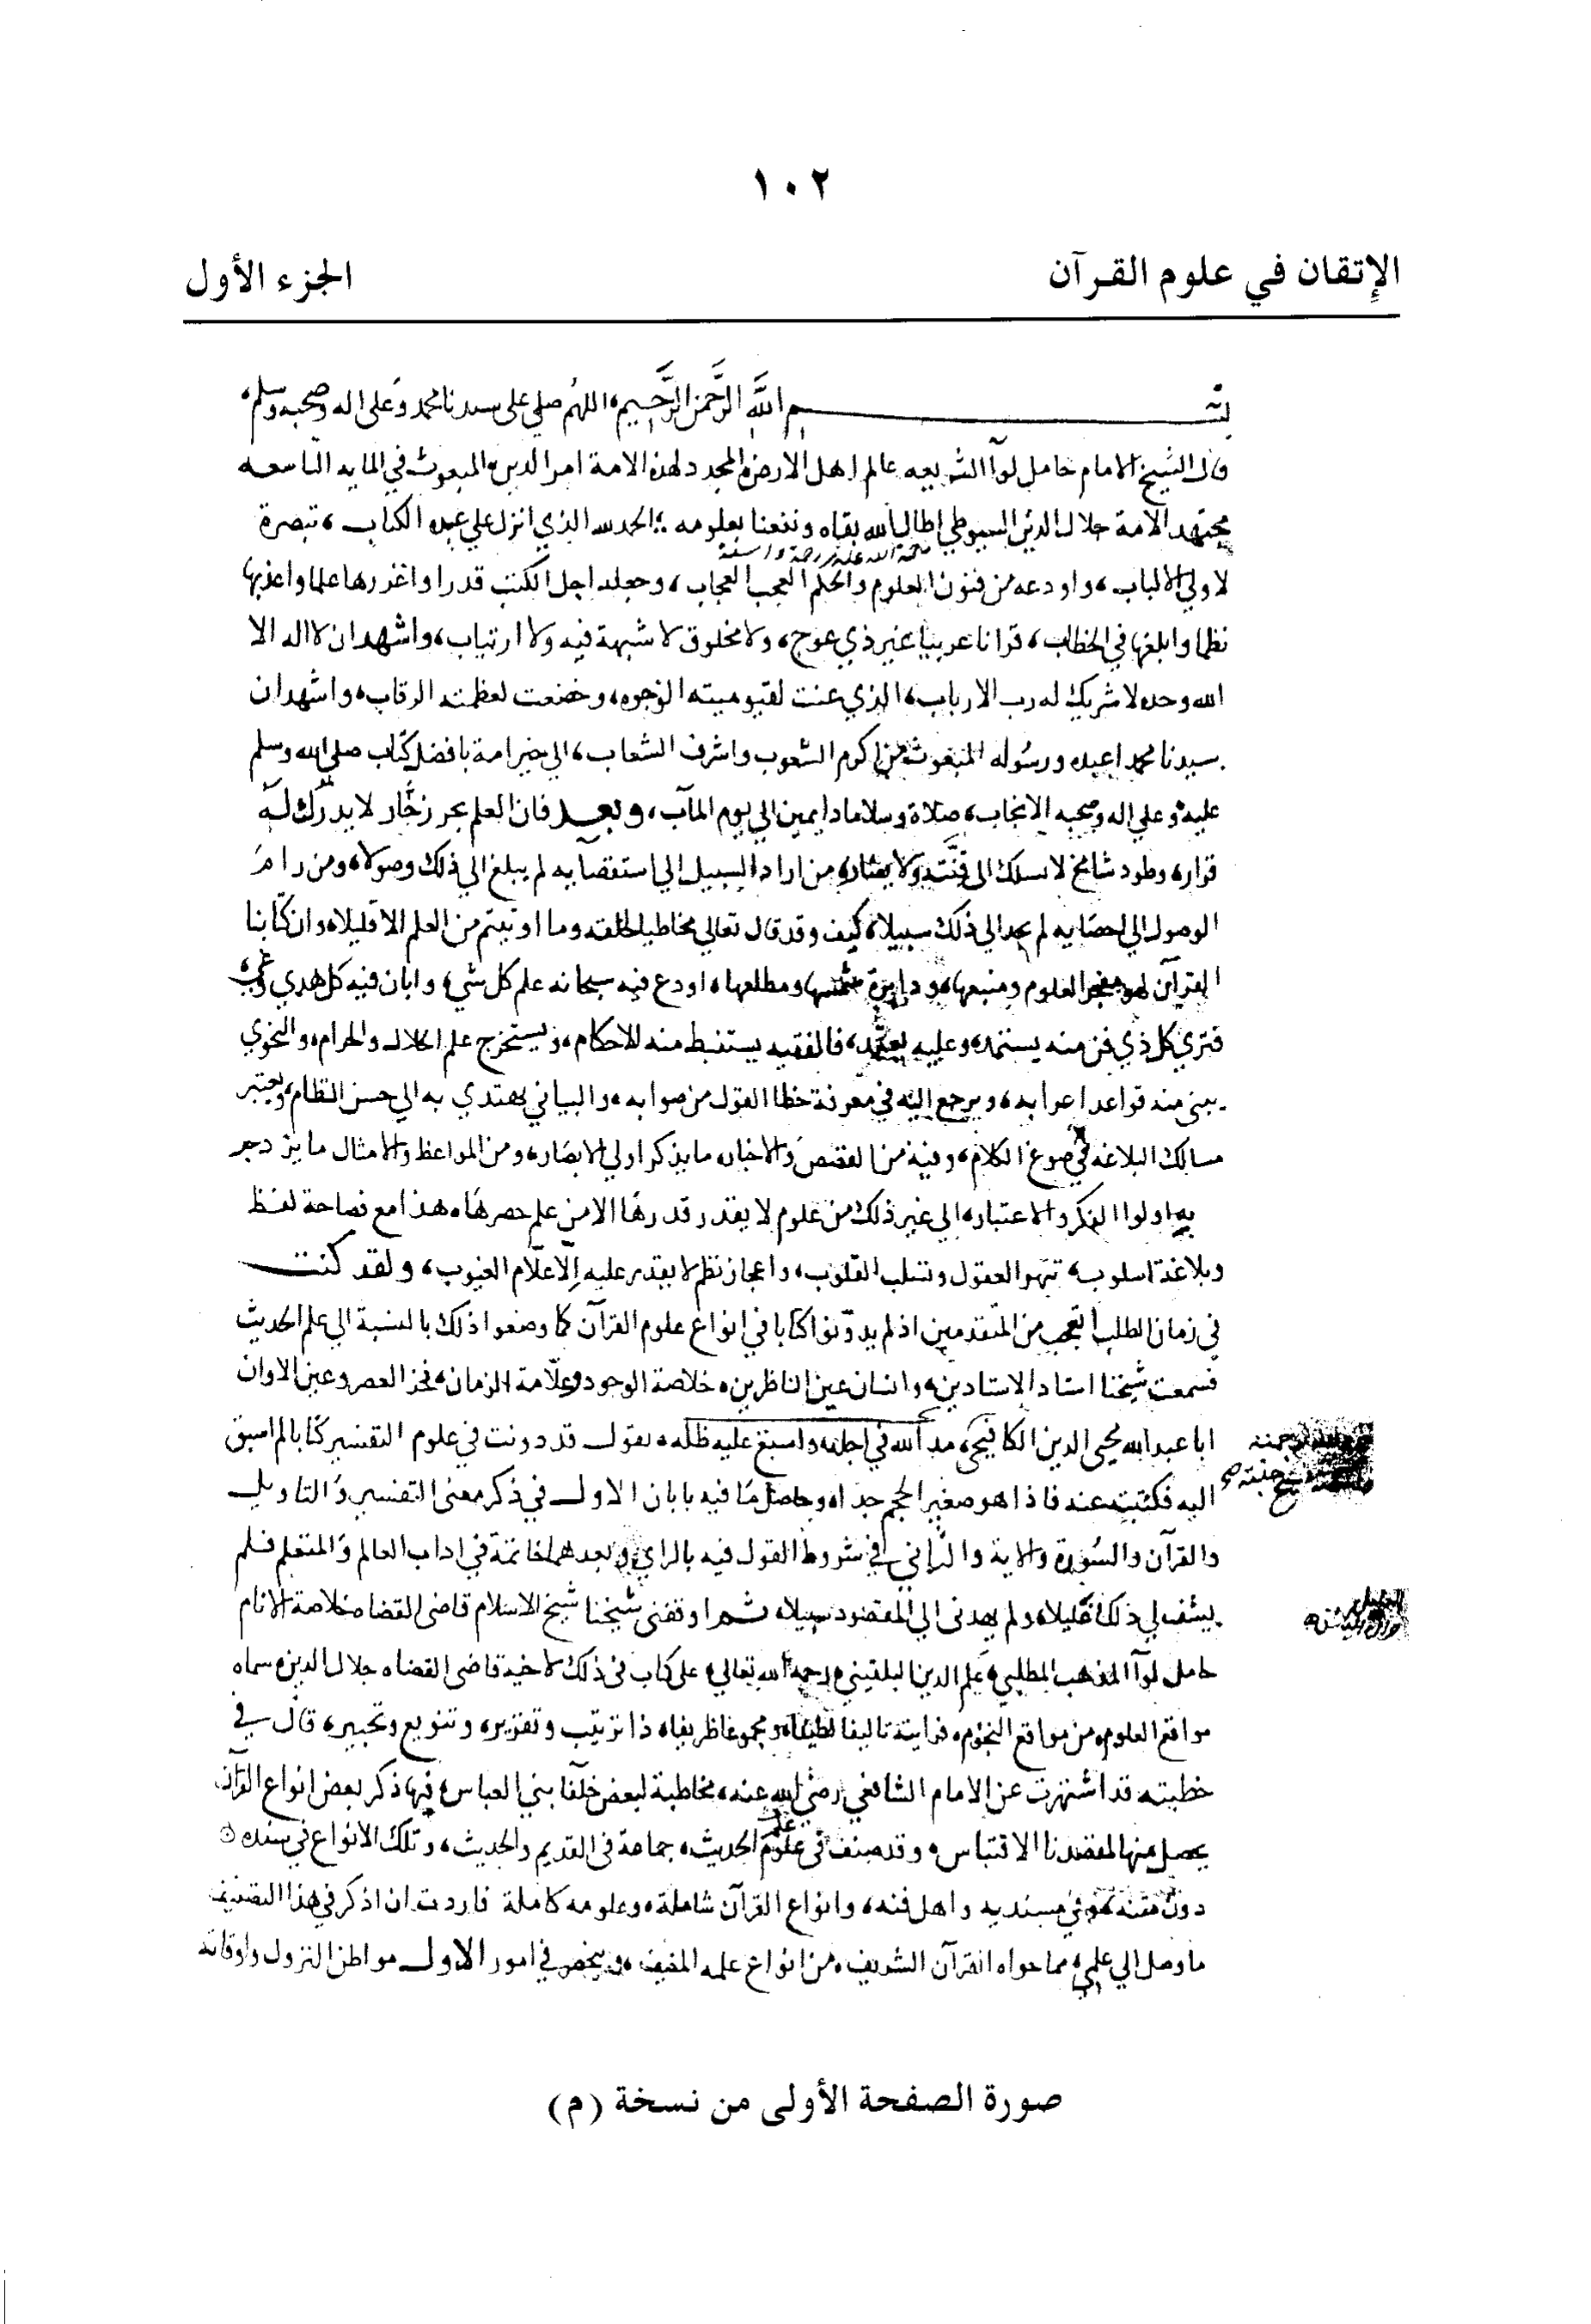 ١٠٢
الإتقان في علوم القرآن
الجزء الأول
بسم الله الرَّحمن الرَّحيم، اللهم صلي على سيدنا محمد وعلى اله وصحبه وسلم،
قال الشيخ الامام حامل لوآ الشريعه عالم اهل الارض المجدد لهذه الامة امر الدين المبعوث في المايه التاسعه
مجتهد الامة جلال الدين السيوطي اطال الله بقاه ونفعنا بعلومه الحمد لله الذي انزل علي عبده الكتاب، تبصرة
لاولي الالباب، واودعه من فنون العلوم والحكم العجب العجاب، وجعله اجل الكتب قدرا واغزرها علما واعذبها
نظما وابلغها في الخطاب، قرانا عربيا غير ذي عوج، ولا مخلوق لا شبهة فيه ولا ارتياب، واشهد ان لا اله الا
الله وحده لا شريك له رب الارباب، الذي عنت لقيوميته الوجوه، وخضعت لعظمته الرقاب، واشهد ان
سيدنا محمدا عبده ورسوله المبعوث من اكرم الشعوب واشرف الشعاب، الي خير امة بافضل كتاب صلي الله وسلم
عليه وعلي اله وصحبه الانجاب، صلاة وسلاما دايمين الي يوم المآب، وبعد فان العلم بحر زخّار لا يدرك له
قرار، وطود شامخ لا يسلك الى قنّته ولا يصار، من اراد السبيل الي استقصايه لم يبلغ الي ذلك وصولا، ومن رام
الوصول الي احصايه لم يجد الي ذلك سبيلا، كيف وقد قال تعالي مخاطبا لخلقه وما اوتيتم من العلم الا قليلا، وان كتابنا
القرآن لهو مفجر العلوم ومنبعها، ودايرة شمسها ومطلعها، اودع فيه سبحانه علم كل شي، وابان فيه كل هدي وغي،
فتري كل ذي فن منه يستمد، وعليه يعتمد، فالفقيه يستنبط منه الاحكام، ويستخرج علم الحلال والحرام، والنحوي
يبنى منه قواعد اعرابه، ويرجع اليه في معرفة خطا القول من صوابه، والبياني يهتدي به الي حسن النظام، ويعتبر
مسالك البلاغه في صوغ الكلام، وفيه من القصص والاخبار ما يذكر اولي الابصار، ومن المواعظ والامثال ما يزدجر
به اولوا الفكر والاعتبار، الي غير ذلك من علوم لا يقدر قدرها الا من علم حصرها، هذا مع فصاحة لفظ
وبلاغة اسلوب، تبهر العقول وتسلب القلوب، واعجاز نظم لا يقدر عليه إلّا علّام الغيوب، ولقد كنت
في زمان الطلب اتعجب من المتقدمين اذ لم يدوّنوا كتابا في انواع علوم القرآن كما وضعوا ذلك بالنسبة الي علم الحديث
فسمعت شيخنا استاد الاستادين، وانسان عين الناظرين، خلاصة الوجود وعلّامة الزمان، فخر العصر وعين الاوان
ابا عبد الله محيى الدين الكافيجى، مد الله في اجله، واسبغ عليه ظله، يقول قد دونت في علوم التفسير كتابا لم اسبق
اليه فكتبته عنه فاذا هو صغير الحجم جدا، وحاصل ما فيه بابان الاول في ذكر معنى التفسير والتاويل
والقرآن والسورة والاية والثاني في شروط القول فيه بالراي، وبعدهما خاتمة في اداب العالم والمتعلم فلم
يشف لي ذلك غليلا، ولم يهدنى الي المقصود سبيلا، ثم اوقفنى شيخنا شيخ الاسلام قاضى القضاه خلاصة الانام
حامل لوآ المذهب المطلبي، علم الدين البلقيني، رحمه الله تعالي، على كتاب فى ذلك لاخيه قاضى القضاه جلال الدين، سماه
مواقع العلوم، من مواقع النجوم، فرايته تاليفا لطيفا، ومجموعا ظريفا، ذا ترتيب وتقرير، وتنويع وتحبير، قال في
خطبته قد اشتهرت عن الامام الشافعي رضي الله عنه، مخاطبة لبعض خلفا بني العباس، فيها ذكر بعض انواع القرآن
يحصل منها لمقصدنا الاقتباس، وقد صنف في علوم الحديث، جماعة فى القديم والحديث، وتلك الانواع في سنده
دون متنه في مسنديه واهل فنه، وانواع القرآن شاملة، وعلومه كاملة فاردت ان اذكر في هذا التصنيف
ما وصل الي علمي، مما حواه القرآن الشريف، من انواع علمه المنيف، وينحصر في امور الاول مواطن النزول واوقاته
صورة الصفحة الأولى من نسخة (م)